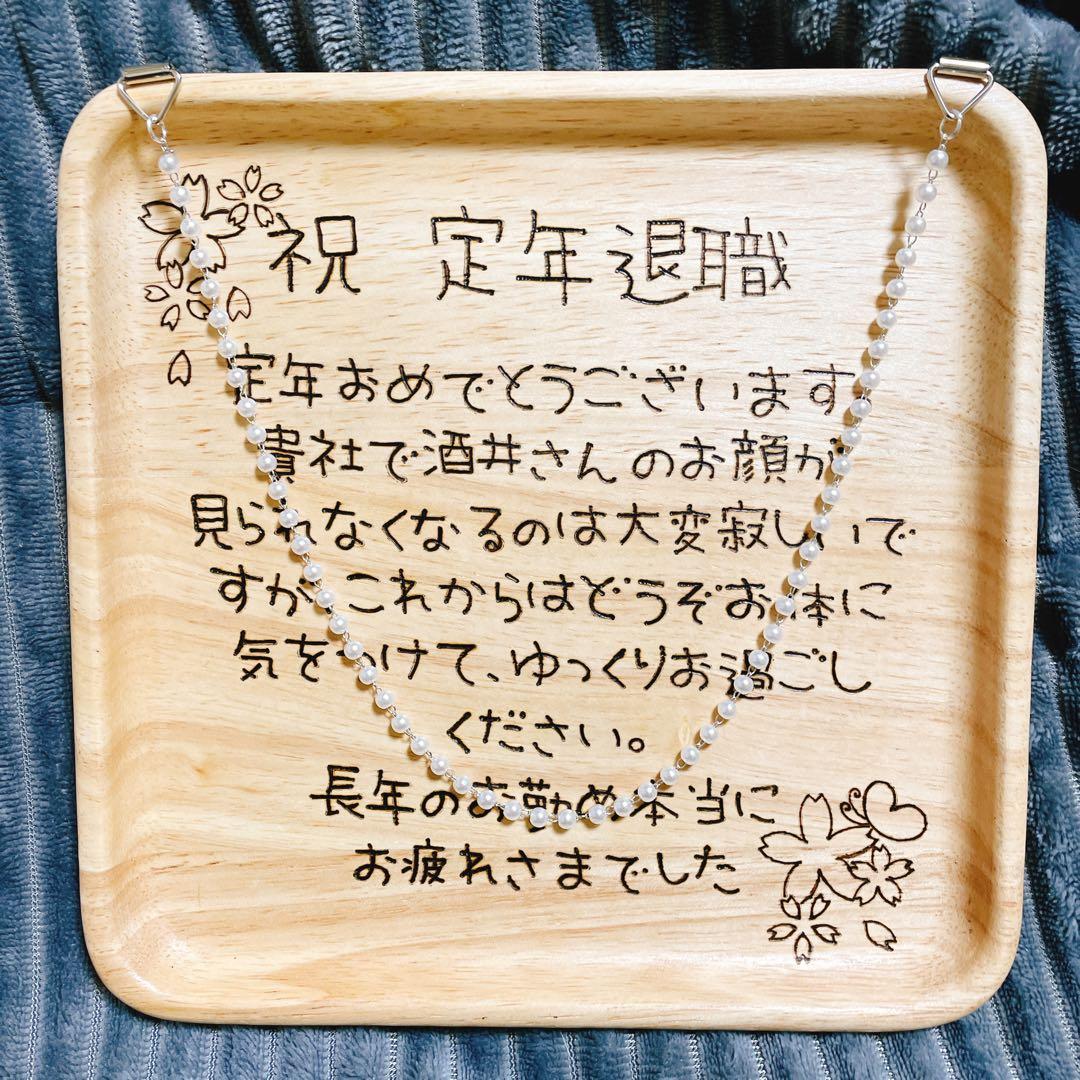 祝 定年退職
定年おめでとうございます
貴社で酒井さんのお顔が
見られなくなるのは大変寂しいで
すが これからはどうぞお体に
気をつけて、ゆっくりお過ごし
ください。
長年のお勤め本当に
お疲れさまでした